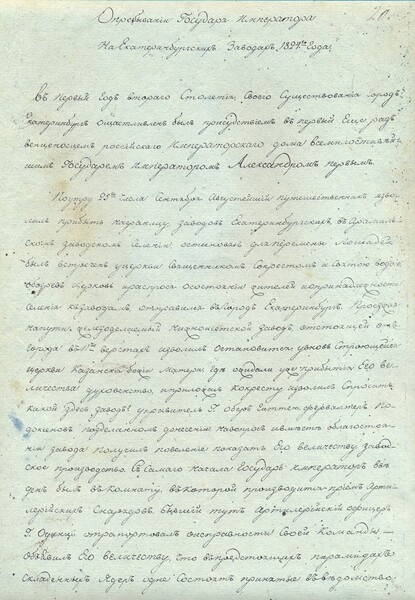 20.
О пребывании Государя Императора
На Екатеринбургских Заводах, 1824го Года,
Въ первый Годъ втораго Столетія, Своего Существованія Городъ
Екатеринбург ощастливлен былъ присудствіем въ первый Еще разъ
венценосцем россійскаго Императорскаго дома всемилостивей¬
шим Государем Императором Александром первым.
Поутру 25го числа Сентября Августейшій путешественник изво¬
лилъ прибыть на границу заводов Екатеринбургских, въ Арамиль¬
ском заводском селеніи, остановясь для перемены Лошадей
былъ встречен у церкви Священником Скрестом и Святою водою
обозрев церковь и распрося о состояніи жителей и принадлежности
селенія къ заводам, отправился въ Городъ Екатеринбург. Проезжая
на пути железоделаемый Нижнеисетской завод, отстоящей от
города въ верстах изволил остановится у вновь Строющейся
церкви Казанскія Божіи Матери где ожидали уже прибытія Его Ве¬
личества духовенство, и приложась ко кресту изволил Спросить
какой здесь завод? управитель Г. обер Гиттенфервалтер По¬
докснов по зделанном донесеніи на вопрос и о месте благостоя¬
нія завода Получил повеленіе показать Его Величеству завод¬
ское производство. Съ Самаго начала Государь Император вве¬
ден былъ в комнату, въ которой производится пріем Арти¬
лерійских Снарядов. бывшій тут Артилерійской офицер
Г. отрапортовал о исправности Своей Команды —
объявил Его Величеству, Что въ предстоящих парамидах
складенных Ядер одне Состоят принятые въ ведомство